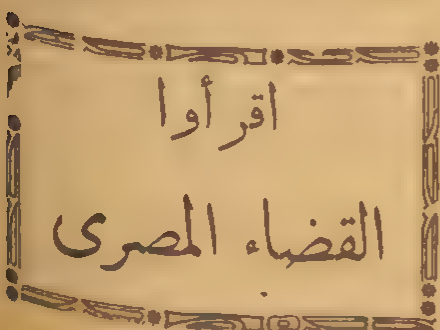 اقرأوا
القضاء المصرى